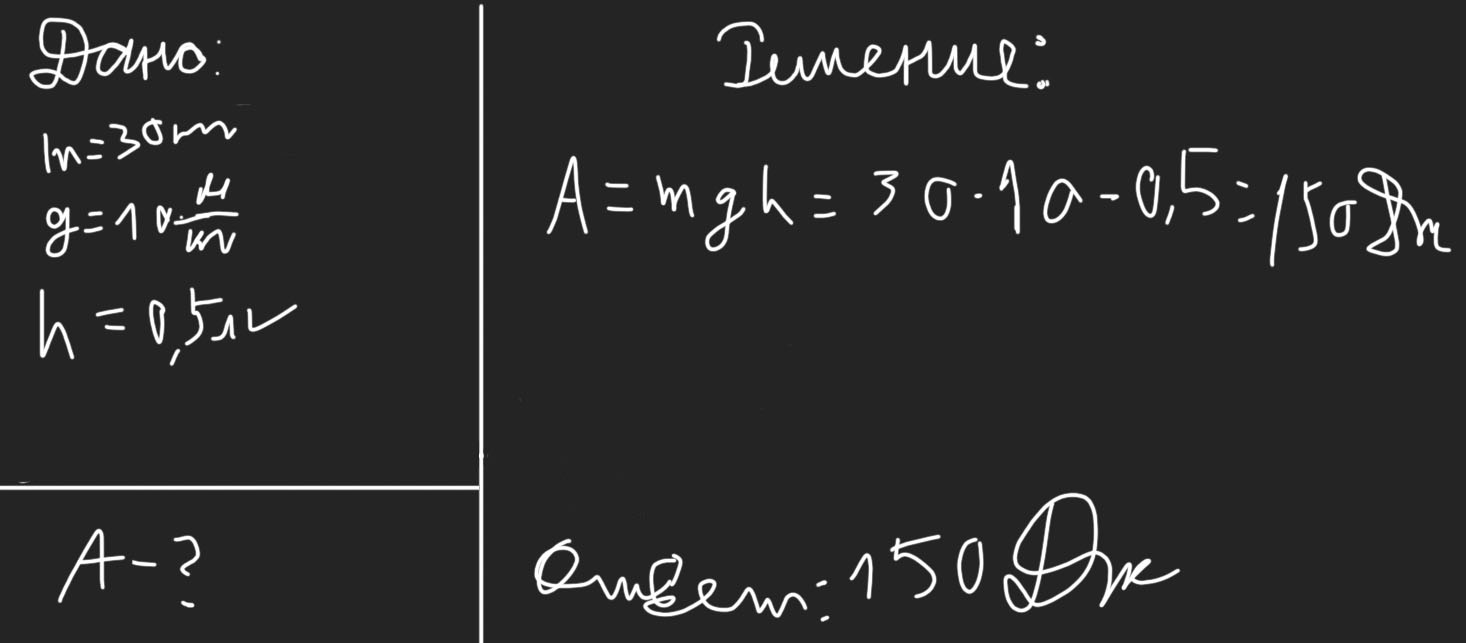 Дано:
m=30кг
g=10 Н/кг
h=0,5м
A-?
Решение:
A=mgh=30·10-0,5=150Дж
Ответ:150Дж